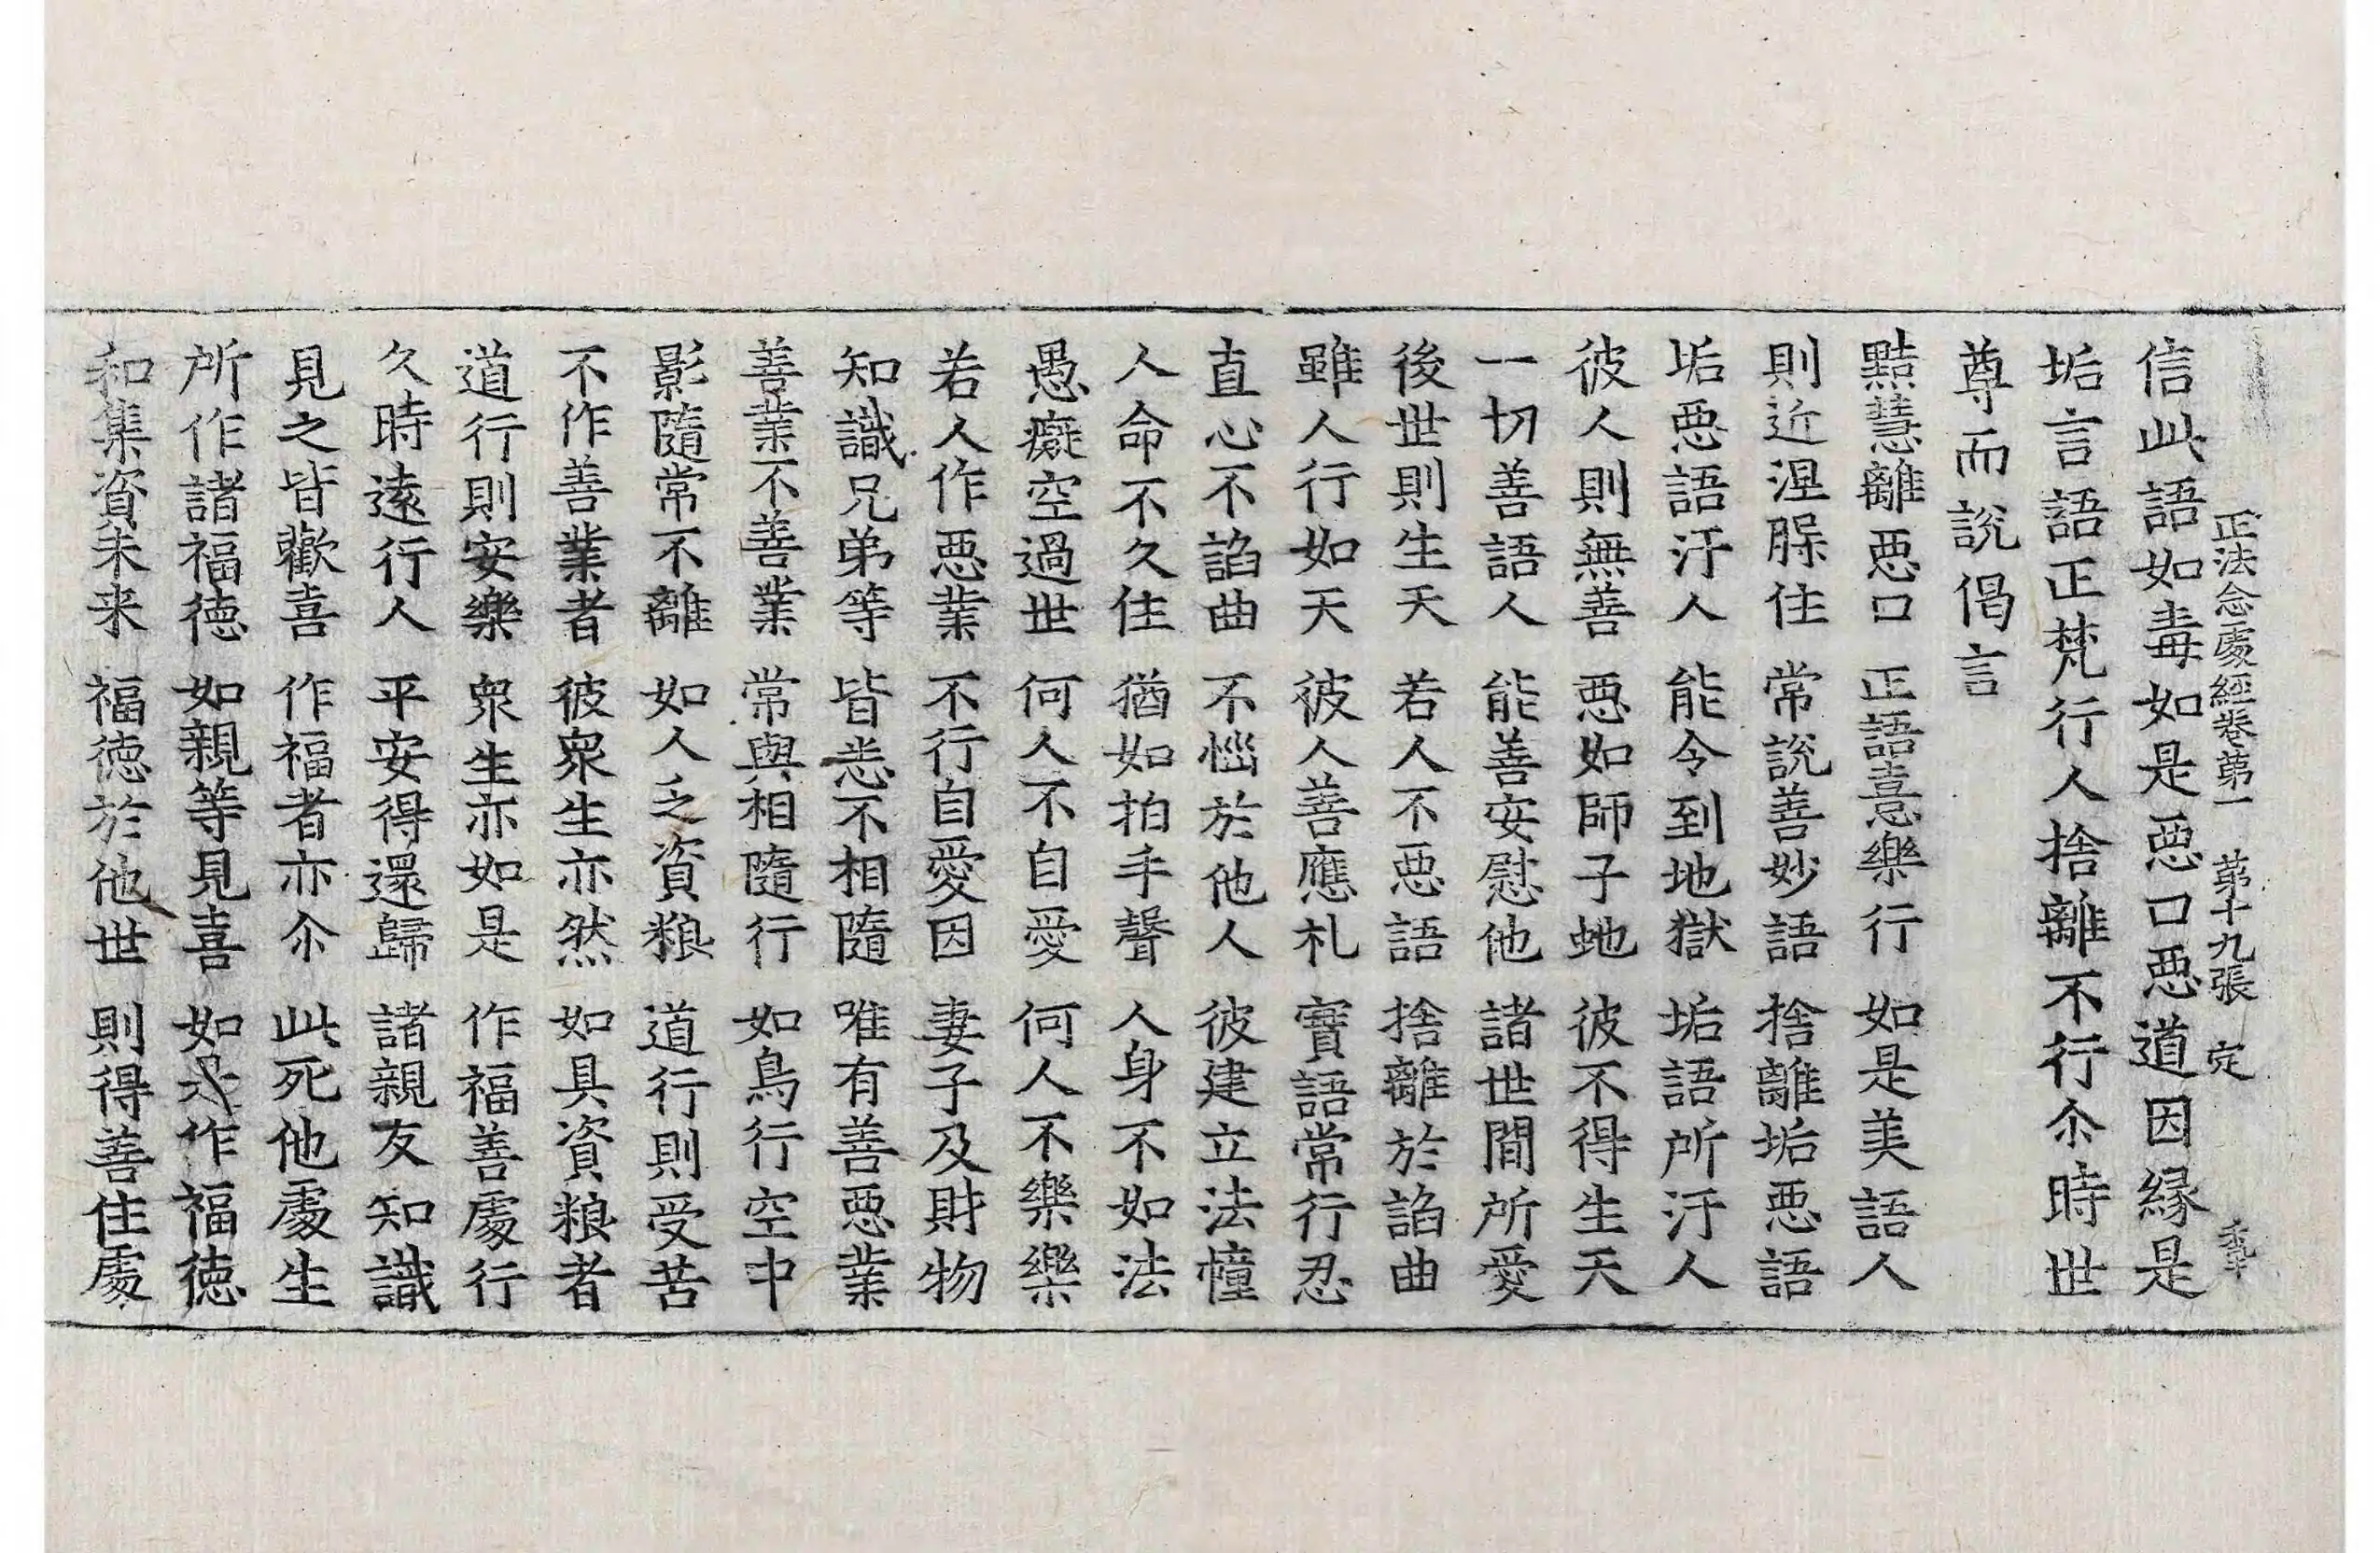 正法念處經卷第一 第十九張 定
信此語如毒如是惡口惡道因縁是
垢言語正梵行人捨離不行尒時世
尊而說偈言
黠慧離惡口 正語憙樂行 如是美語人
則近涅槃住 常說善妙語 捨離垢惡語
垢惡語汙人 能令到地獄 垢語所汙人
彼人則無善 惡如師子虵 彼不得生天
一切善語人 能善安慰他 諸世間所愛
後世則生天 若人不惡語 捨離於諂曲
雖人行如天 彼人善應礼 實語常行忍
直心不諂曲 不惱於他人 彼建立法幢
人命不久住 猶如拍手聲 人身不如法
愚癡空過世 何人不自愛 何人不樂樂
若人作惡業 不行自愛因 妻子及財物
知識兄弟等 皆悉不相隨 唯有善惡業
善業不善業 常與相隨行 如鳥行空中
影隨常不離 如人乏資粮 道行則受苦
不作善業者 彼衆生亦然 如具資粮者
道行則安樂 衆生亦如是 作福善處行
久時遠行人 平安得還歸 諸親友知識
見之皆歡喜 作福者亦尒 此死他處生
所作諸福徳 如親等見喜 如是作福徳
和集資未来 福徳於他世 則得善住處